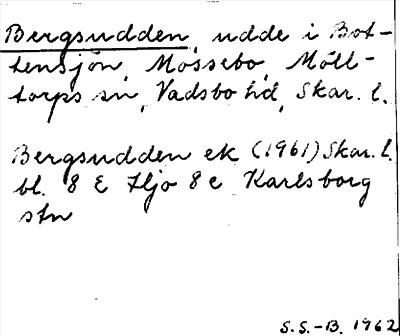 Bergsudden, udde i Bot-
tensjön, Mossebo, Möll-
torps sn, Vadsbo hd, Skar. l.
Bergsudden ek (1961) Skar. l.
bl. 8 E Hjo 8 e Karlsborg
stn
S.S.-B. 1962